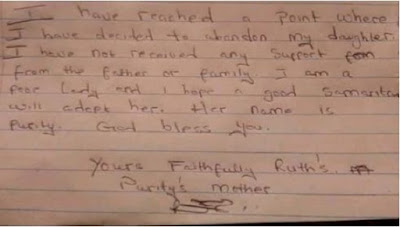 I have reached a point where
I have decided to abandon my daughter.
I have not received any support
from the father or family I am a
poor lady and I hope a good samaritan
will adopt her. Her name is
Purity. God bless you.
Yours Faithfully Ruth's.
Purity's mother